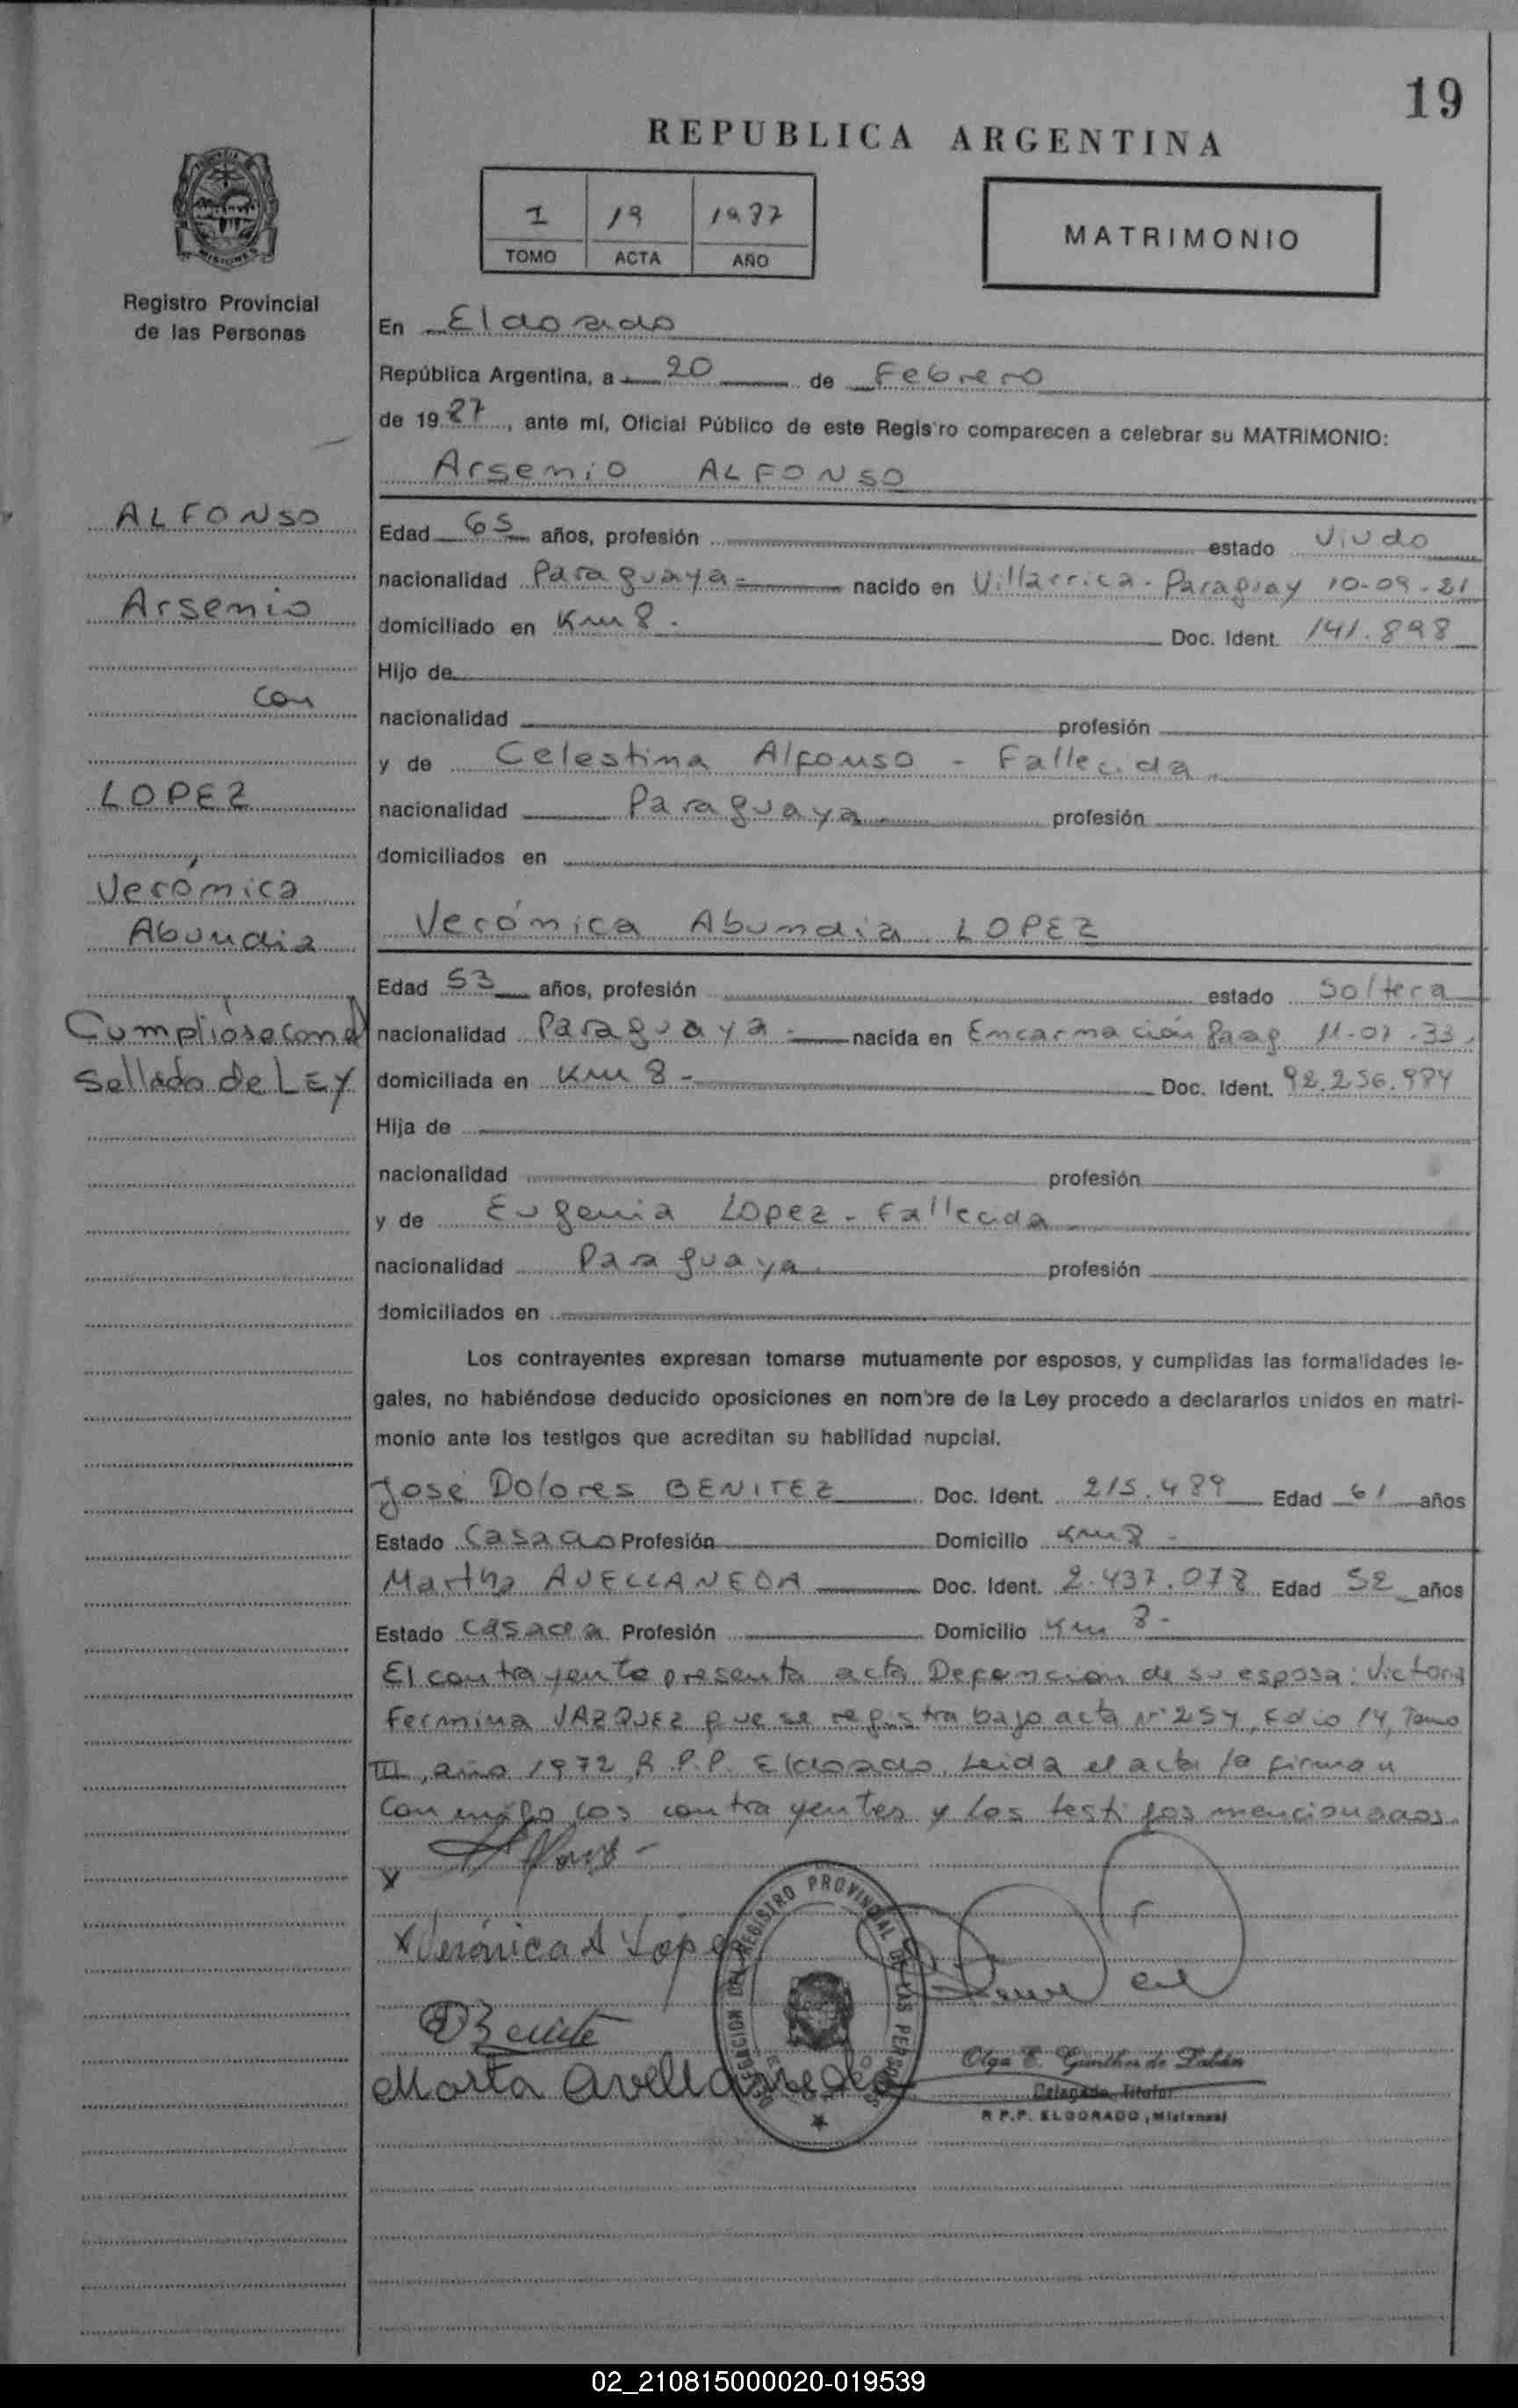 19
REPUBLICA ARGENTINA
I 19 1987
TOMO ACTA AÑO
MATRIMONIO
Registro Provincial
de las Personas
En Eldorado
República Argentina, a 20 de Febrero
de 1987, ante mí, Oficial Público de este Registro comparecen a celebrar su MATRIMONIO:
Arsenio ALFONSO
ALFONSO
Arsenio
con
LOPEZ
Verónica
Abundia
Cumplióse con el
Sellado de LEY
Edad 65 años, profesión estado Viudo
nacionalidad Paraguaya.- nacido en Villarrica - Paraguay 10-09-21
domiciliado en Km 8.- Doc. Ident. 141.898
Hijo de
nacionalidad profesión
y de Celestina Alfonso - Fallecida.
nacionalidad Paraguaya profesión
domiciliados en
Verónica Abundia LOPEZ
Edad 53 años, profesión estado Soltera
nacionalidad Paraguaya.- nacida en Encarnación Parag 11-07-33.
domiciliada en Km 8 - Doc. Ident. 92.256.984
Hija de
nacionalidad profesión
y de Eugenia Lopez - Fallecida
nacionalidad Paraguaya. profesión
domiciliados en
Los contrayentes expresan tomarse mutuamente por esposos, y cumplidas las formalidades le-
gales, no habiéndose deducido oposiciones en nombre de la Ley procedo a declararlos unidos en matri-
monio ante los testigos que acreditan su habilidad nupcial.
José Dolores BENITEZ Doc. Ident. 215.489 Edad 61 años
Estado Casado Profesión Domicilio Km 8 -
Martha AVELLANEDA Doc. Ident. 2.437.078 Edad 52 años
Estado Casada Profesión Domicilio Km 8 -
El contrayente presenta acta Defunción de su esposa: Victoria
Fermina VAZQUEZ que se registra bajo acta Nº 254, Folio 14, Tomo
III, año 1972, R.P.P. Eldorado. Leida el acta la firman
conmigo los contrayentes y los testigos mencionados.
x
x Verónica A López
Benite
Marta Avellaneda
DELEGACION DEL REGISTRO PROVINCIAL DE LAS PERSONAS
Olga E. Günther de
Delegada Titular
R.P.P. ELDORADO, Misiones
02_210815000020-019539